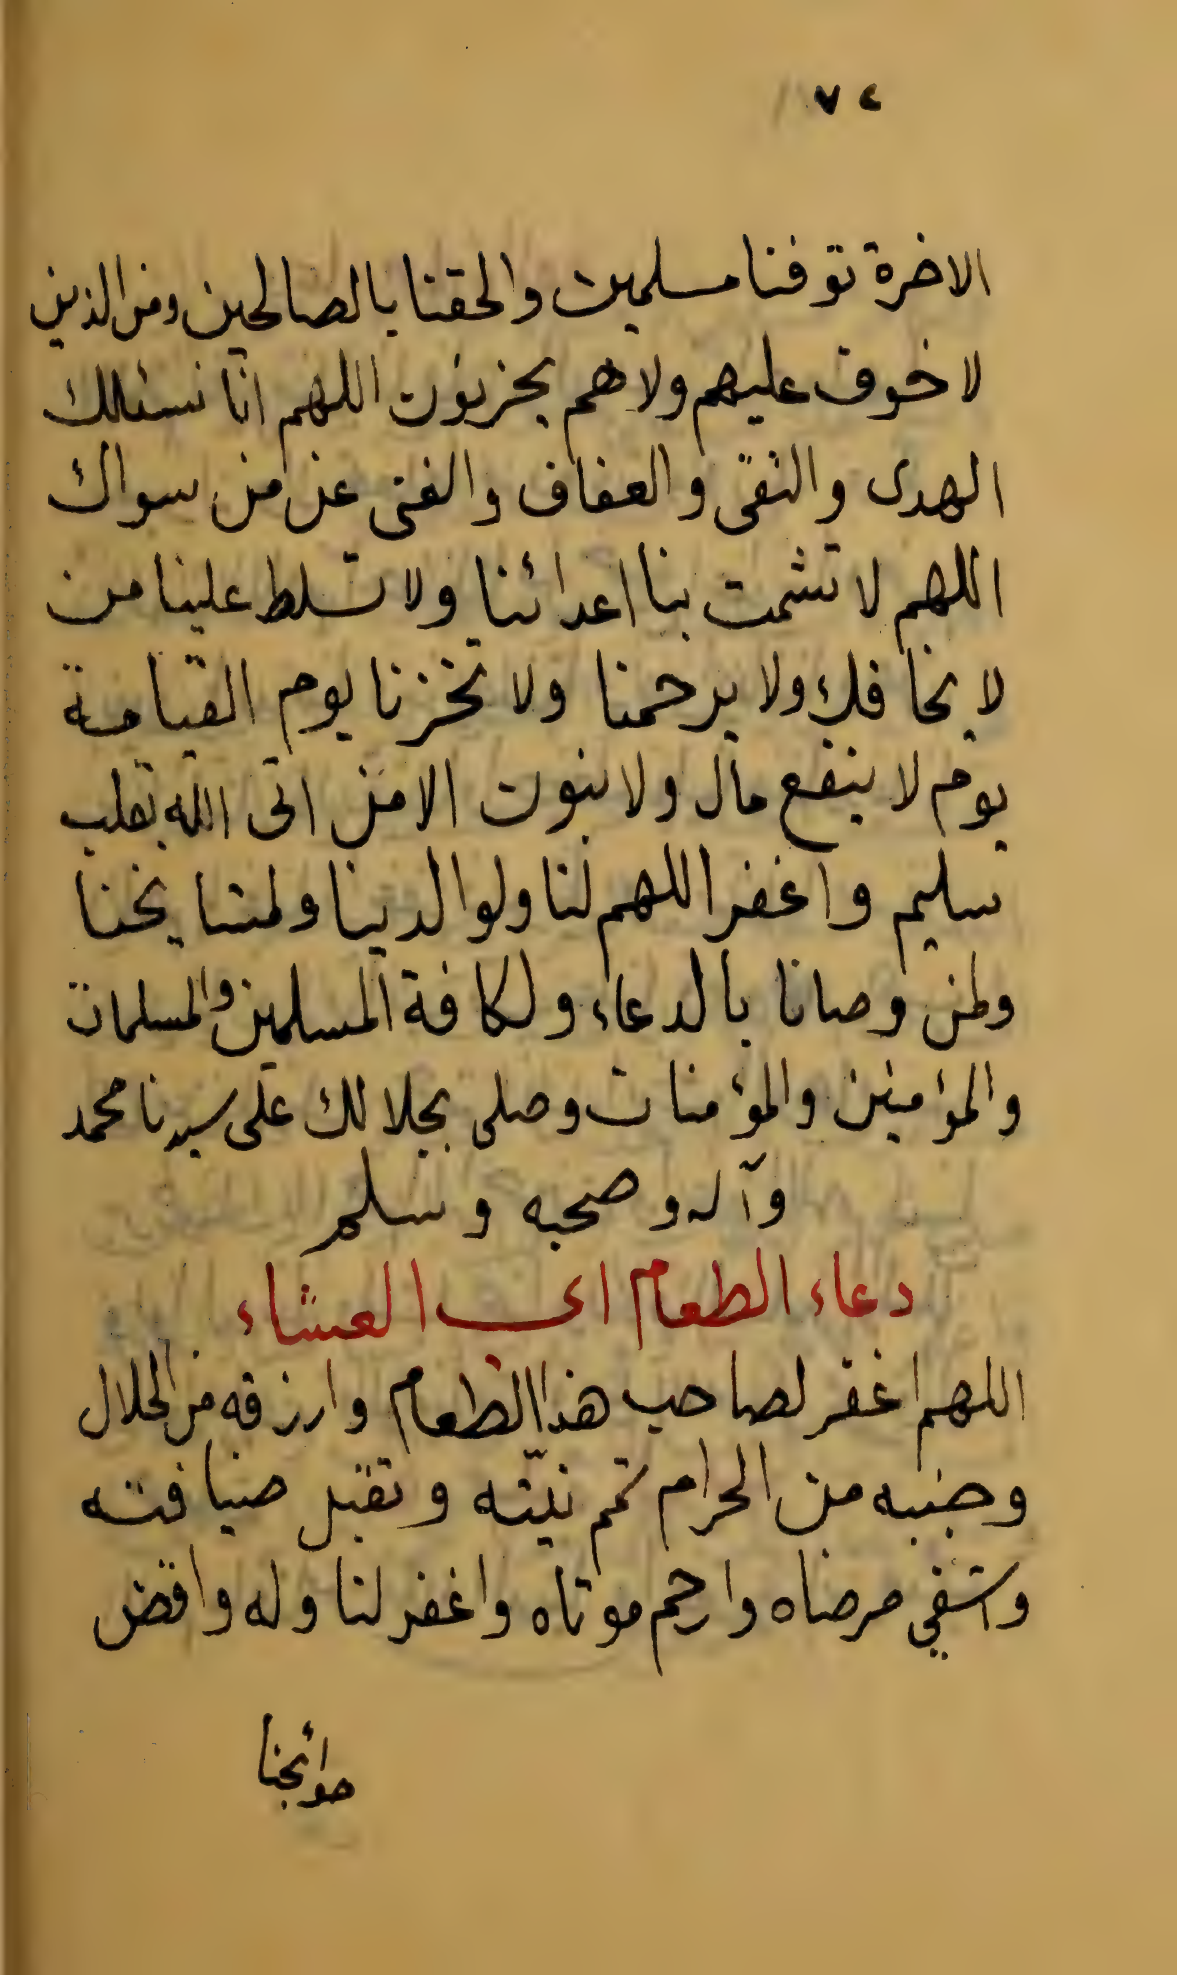 ٧٤
الاخرة توفنا مسلمين والحقنا بالصالحين ومن الذين
لا خوف عليهم ولا هم يحزنون اللهم انّا نسئلك
الهدى والتقى والعفاف والغنى عن من سواك
اللهم لا تشمت بنا اعدائنا ولا تسلط علينا من
لا يخافك ولا يرحمنا ولا تخزنا يوم القيامة
يوم لا ينفع مال ولا بنون الا من اتى الله بقلب
سليم واغفر اللهم لنا ولوالدينا ولمشايخنا
ولمن وصانا بالدعاء ولكافة المسلمين والمسلمات
والمؤمنين والمؤمنات وصلى بجلالك على سيدنا محمد
وآله وصحبه وسلم
دعاء الطعام اى العشاء
اللهم اغفر لصاحب هذا الطعام وارزقه من الحلال
وجنبه من الحرام تمم نيّته وتقبل ضيافته
واشفي مرضاه وارحم موتاه واغفر لنا وله واقض
حوائجنا